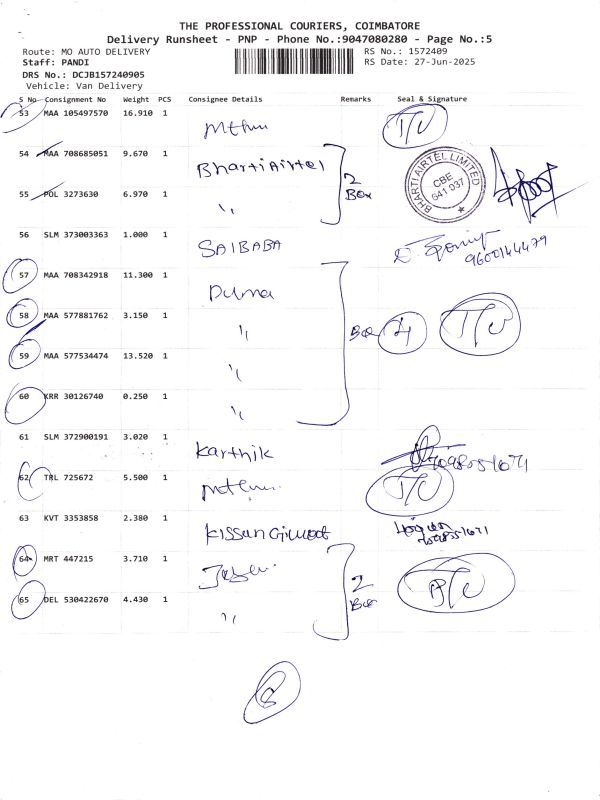 THE PROFESSIONAL COURIERS, COIMBATORE
Delivery Runsheet - PNP - Phone No.:9047080280 - Page No.:5
Route: MO AUTO DELIVERY RS No.: 1572409
Staff: PANDI RS Date: 27-Jun-2025
DRS No.: DCJB157240905
Vehicle: Van Delivery
S No Consignment No Weight PCS Consignee Details Remarks Seal & Signature
53 MAA 105497570 16.910 1
54 MAA 708685051 9.670 1 Bharti Airtel
2 Box
BHARTI AIRTEL LIMITED
CBE
641 037
55 POL 3273630 6.970 1 "
56 SLM 373003363 1.000 1 SAIBABA
9600144479
57 MAA 708342918 11.300 1 Puma
58 MAA 577881762 3.150 1 "
Box 4
59 MAA 577534474 13.520 1 "
60 KRR 30126740 0.250 1 "
61 SLM 372900191 3.020 1 Karthik
62 TRL 725672 5.500 1
63 KVT 3353858 2.380 1
64 MRT 447215 3.710 1
2 Box
65 DEL 530422670 4.430 1 "